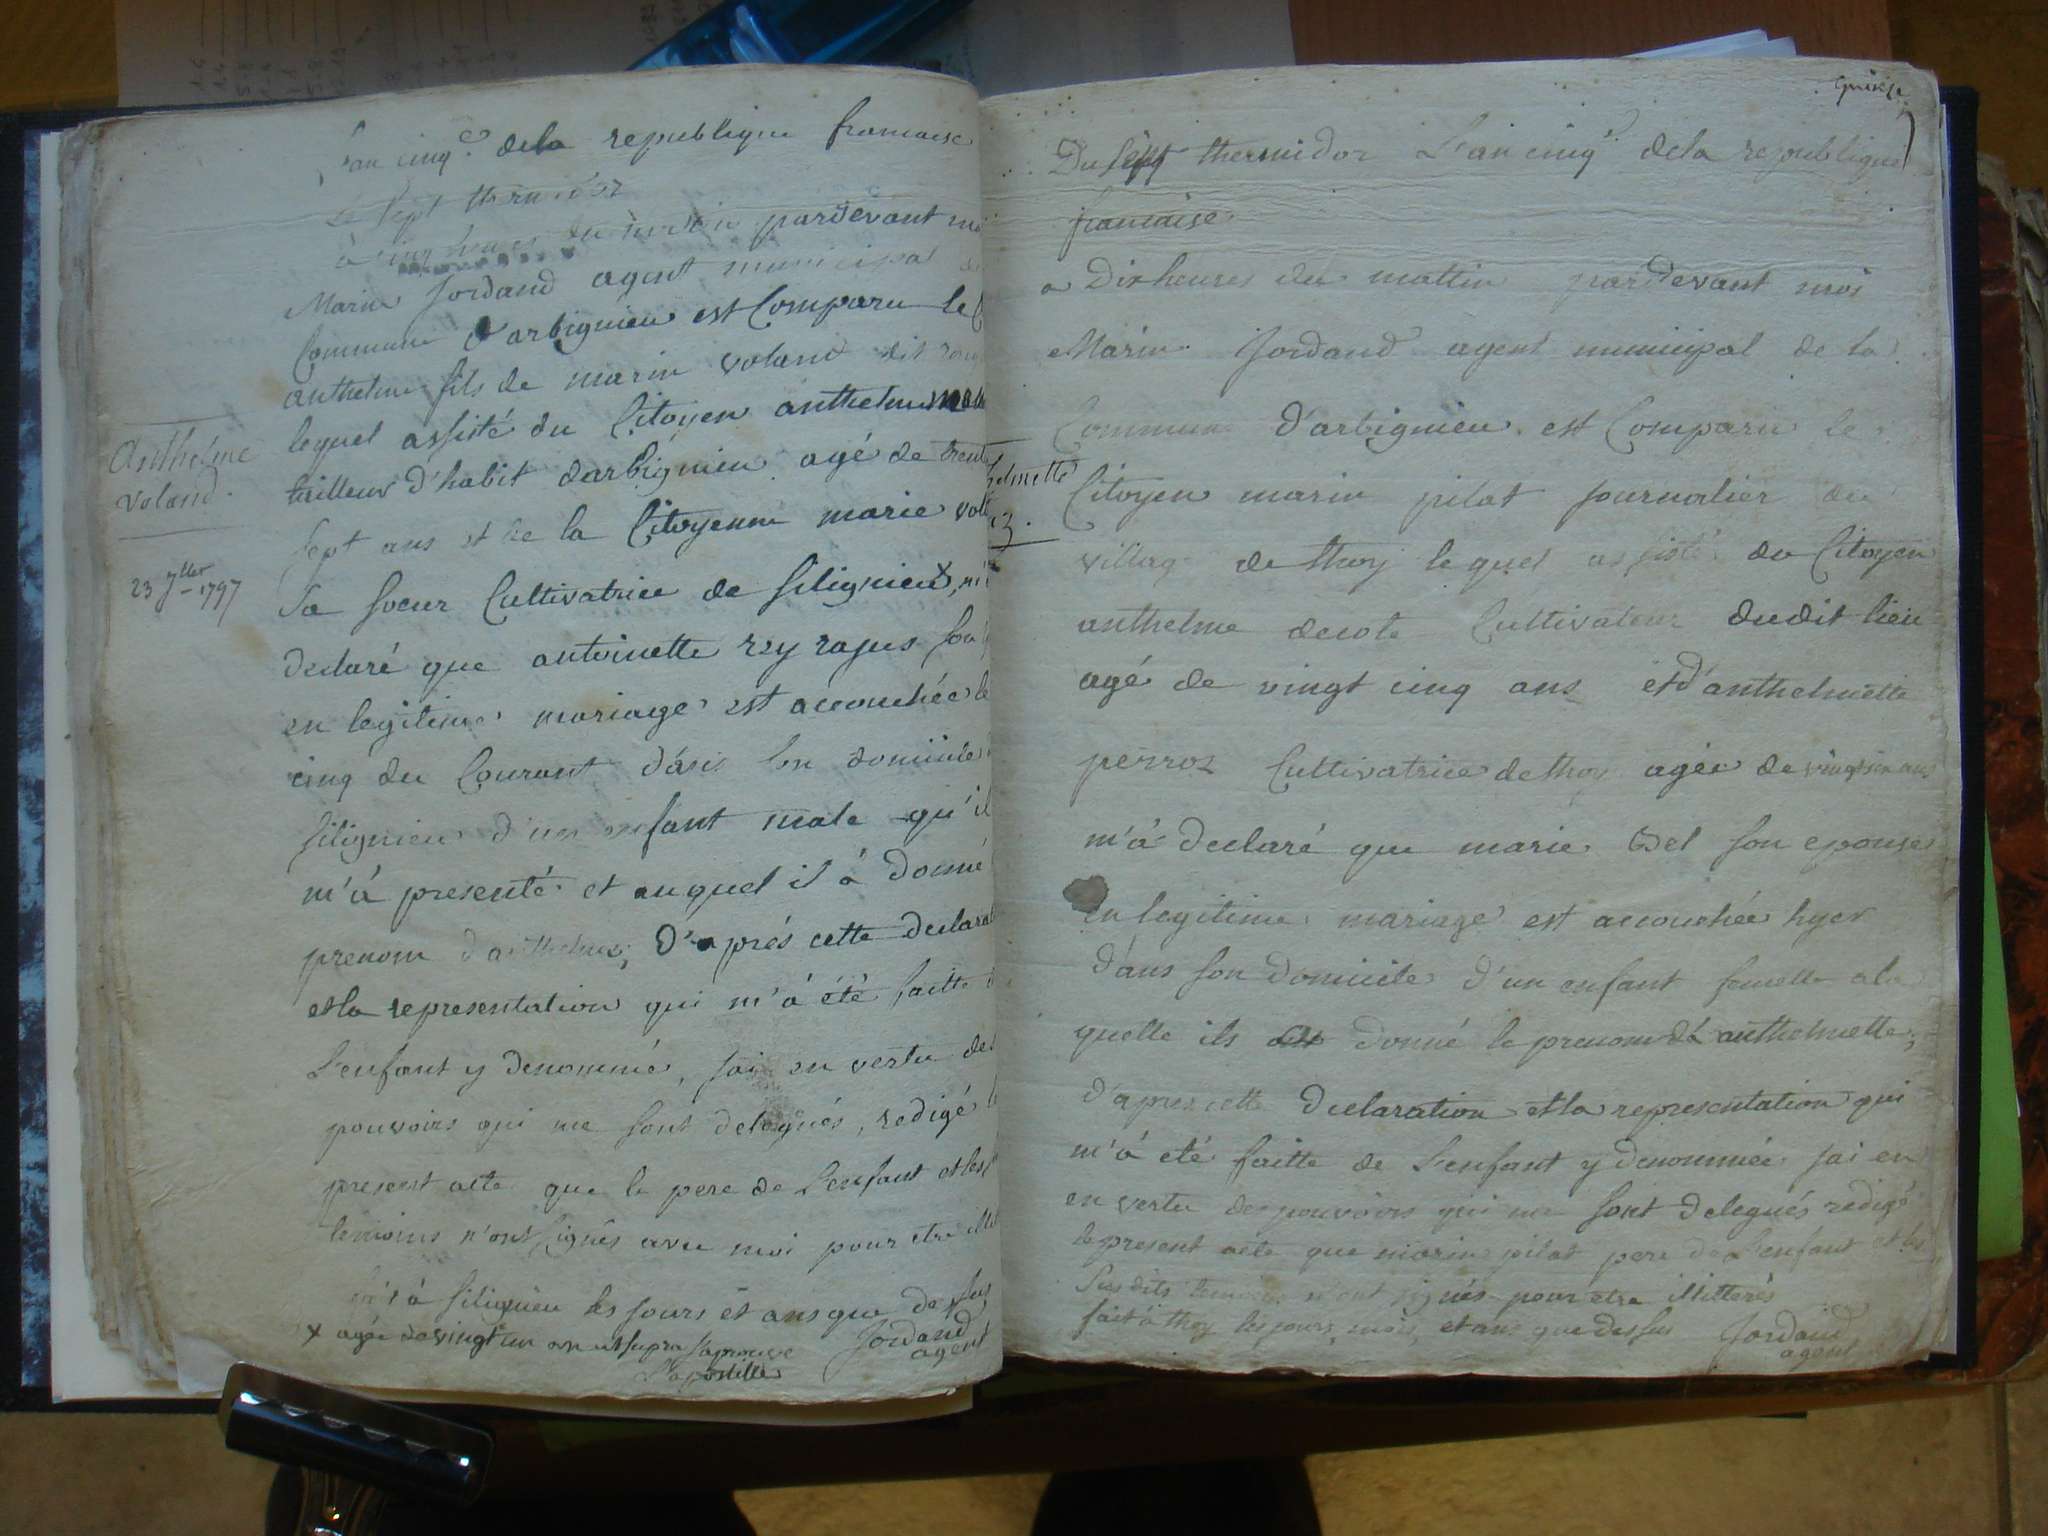 L'an cinq.e dela republique francaise
Le sept thermidor
à cinq heures du matin pardevant moi
Marin Jordand agent municipal de
Commune d'arbignieu est Comparu le C
anthelme fils de marin voland dit
lequel assisté du Citoyen anthelme
tailleur d'habit darbignieu agé de trente
sept ans et de la Citoyenne marie vol
sa soeur Cultivatrice de silignieu x, m'à
declaré que antoinette rey rajus son
en legitime mariage est accouchée le
cinq du Courant dans son domicile
silignieu d'un enfant male qu'il
m'à presenté et auquel il à donné
prenom d'anthelme, D'aprés cette declarat
et la representation qui m'à été faitte d
L'enfant y denommé, jai en vertu des
pouvoirs qui me sont delegués, redigé le
present acte que le pere de L'enfant et les
temoins n'ont signés avec moi pour etre illit
fait à silignieu les jours et ans que dessus
x agée de vingt un an ut supra japrouve
L'apostille
Jordand
agent
Anthelme
voland.
23 7bre 1797
quinze
Du sept thermidor L'an cinq.e dela republique
francaise
a Dix heures du mattin pardevant moi
Marin Jordand agent municipal de la
Commune D'arbignieu est Comparu le
Citoyen marin pilat journalier du
village de thoy lequel assisté du Citoyen
anthelme decote Cultivateur dudit lieu
agé de vingt cinq ans et d'anthelmette
perroz Cultivatrice de thoy agée de vingt six ans
m'à declaré que marie Bel son epouse
en legitime mariage est accouchée hyer
dans son domicile d'un enfant femelle a la
quelle ils ont donné le prenom d'anthelmette;
d'apres cette declaration et la representation qui
m'à eté faitte de L'enfant y denommée jai en
en vertu des pouvoirs qui me sont delegués redigé
le present acte que marin pilat pere de L'enfant et les
susdits temoins n'ont signés pour etre illitterés
fait à thoy les jours, mois, et ans que dessus
Jordand
agent
helmette